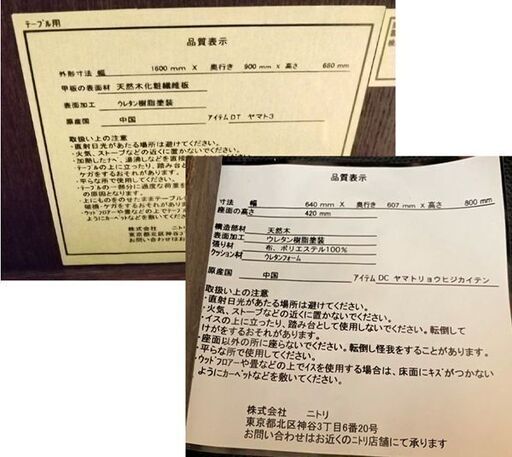 テーブル用
品質表示
外形寸法 幅 1600 mm X 奥行き 900 mm X 高さ 680 mm
甲板の表面材 天然木化粧繊維板
表面加工 ウレタン樹脂塗装
原産国 中国 アイテム DT ヤマト3
取扱い上の注意
・直射日光があたる場所は避けてください。
・火気、ストーブなどの近くに置かないでください。
・加熱したナベ、湯沸しなどを直接
・テーブルの上に立ったり、踏み台と
ケガをするおそれがあります。
・平らな所で使用してください。
・テーブルの一部分に過度な荷重を
の原因となります。
・上にものをのせたままテーブル
破損・ケガをするおそれがありま
・ウッドフローアーや畳などの上でテーブ
ように
株式会社 ニトリ
東京都北区神谷3丁
お問い合わせはお
品質表示
寸法 幅 640 mm X 奥行き 607 mm X 高さ 800 mm
座面の高さ 420 mm
構造部材 天然木
表面加工 ウレタン樹脂塗装
張り材 布、ポリエステル100%
クッション材 ウレタンフォーム
原産国 中国 アイテム DC ヤマトリョウヒジカイテン
取扱い上の注意
・直射日光があたる場所は避けてください。
・火気、ストーブなどの近くに置かないでください。
・イスの上に立ったり、踏み台として使用しないでください。転倒して
けがをするおそれがあります。
・座面以外の所に座らないでください。転倒し怪我をすることがあります。
・平らな所で使用してください。
・ウッドフローアーや畳などの上でイスを使用する場合は、床面にキズがつかない
ようにカーペットなどを敷いてください。
株式会社 ニトリ
東京都北区神谷3丁目6番20号
お問い合わせはお近くのニトリ店舗にて承ります